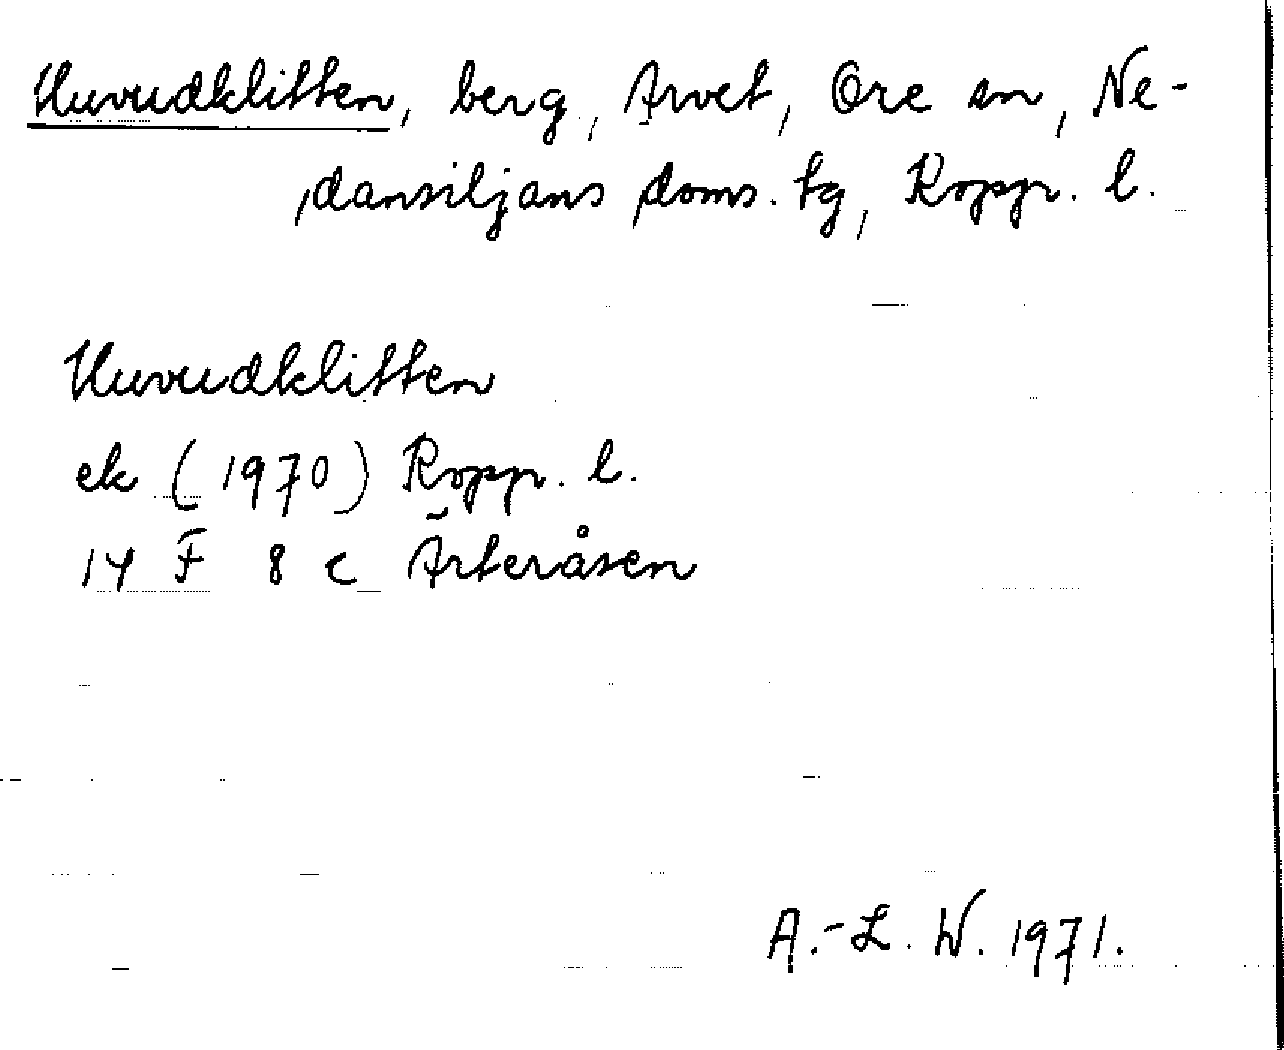 Huvudklitten, berg, Arvet, Ore sn, Ne-
dansiljans doms. tg, Kopp. l.
Huvudklitten
ek (1970) Kopp. l.
14 F 8 c Ärteråsen
A.-L. W. 1971.